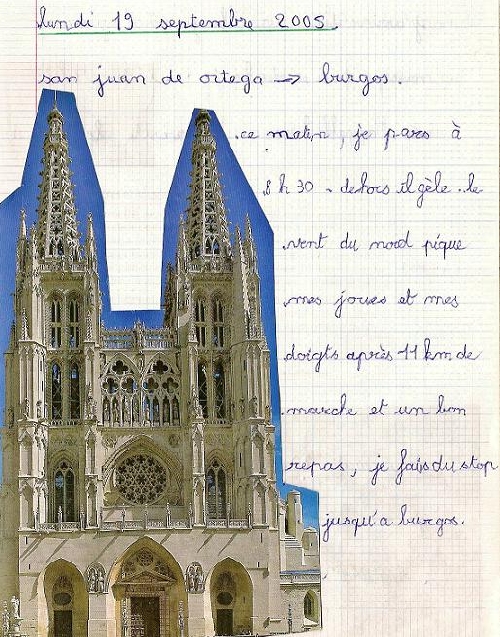 lundi 19 septembre 2005.
san juan de ortega → burgos.
ce matin, je pars à
8 h 30 - dehors il gèle. le
vent du nord pique
mes joues et mes
doigts après 11 km de
marche et un bon
repas, je fais du stop
jusqu'a burgos.